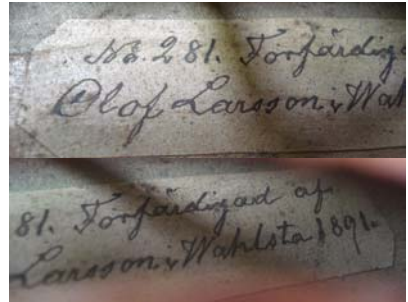 No. 281. Forfärdiga
Olof Larsson i Wah
81. Forfärdigad af
Larsson i Wahlsta 1891.